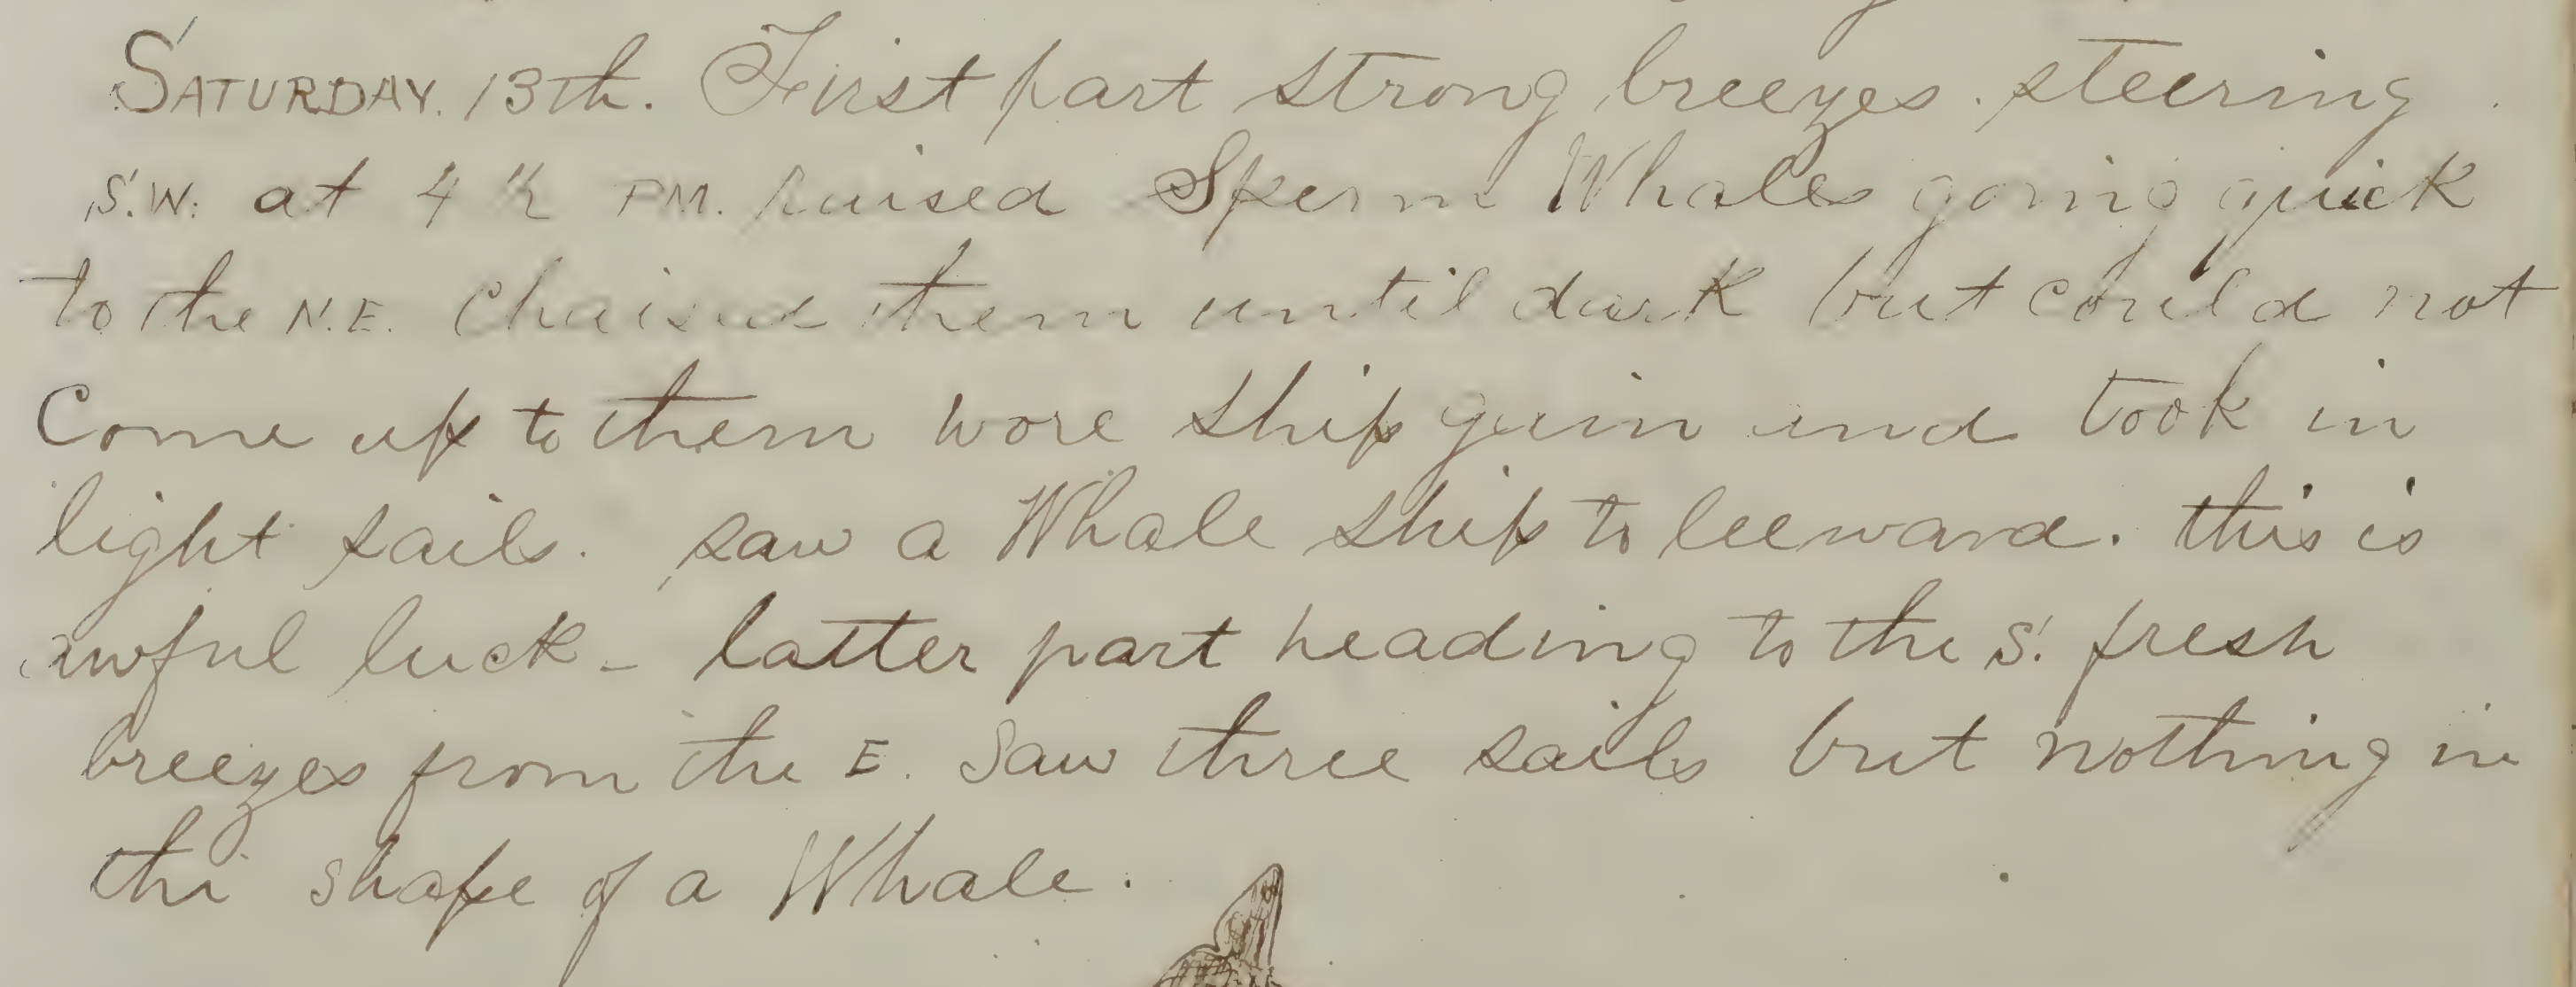 SATURDAY. 13th. First part strong breezes. steering
S.W. at 4 h PM. raised Sperm Whales going quick
to the N.E. Chaised them until dark but could not
Come up to them wore ship gain and took in
light sails. saw a Whale ship to leeward. this is
awful luck - latter part heading to the S. fresh
breezes from the E. Saw three sails but nothing in
the shape of a Whale.